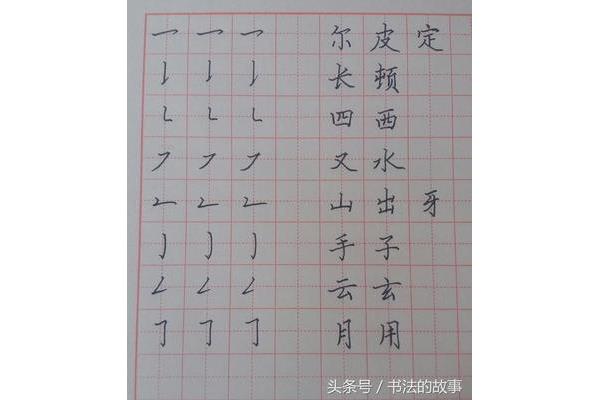 尔皮定
长顿
四西
又水
山出牙
手子
云玄
月用
头条号 / 书法的故事